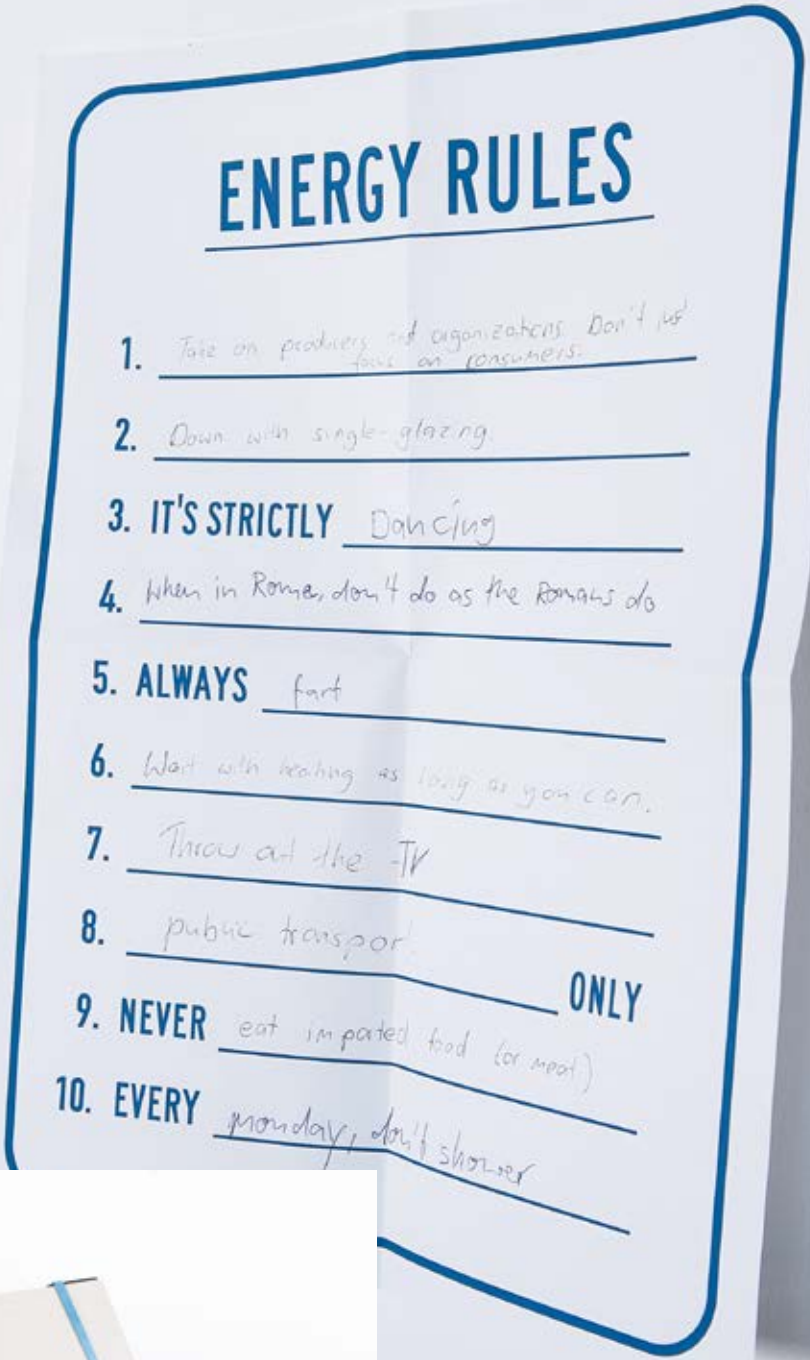 ENERGY RULES
1. Take on producers and organizations. Don't just
focus on consumers.
2. Down with single-glazing.
3. IT'S STRICTLY Dancing
4. When in Rome, don't do as the Romans do
5. ALWAYS fart
6. Wait with heating as long as you can.
7. Throw out the TV
8. public transport ONLY
9. NEVER eat imported food (or meat)
10. EVERY monday, don't shower